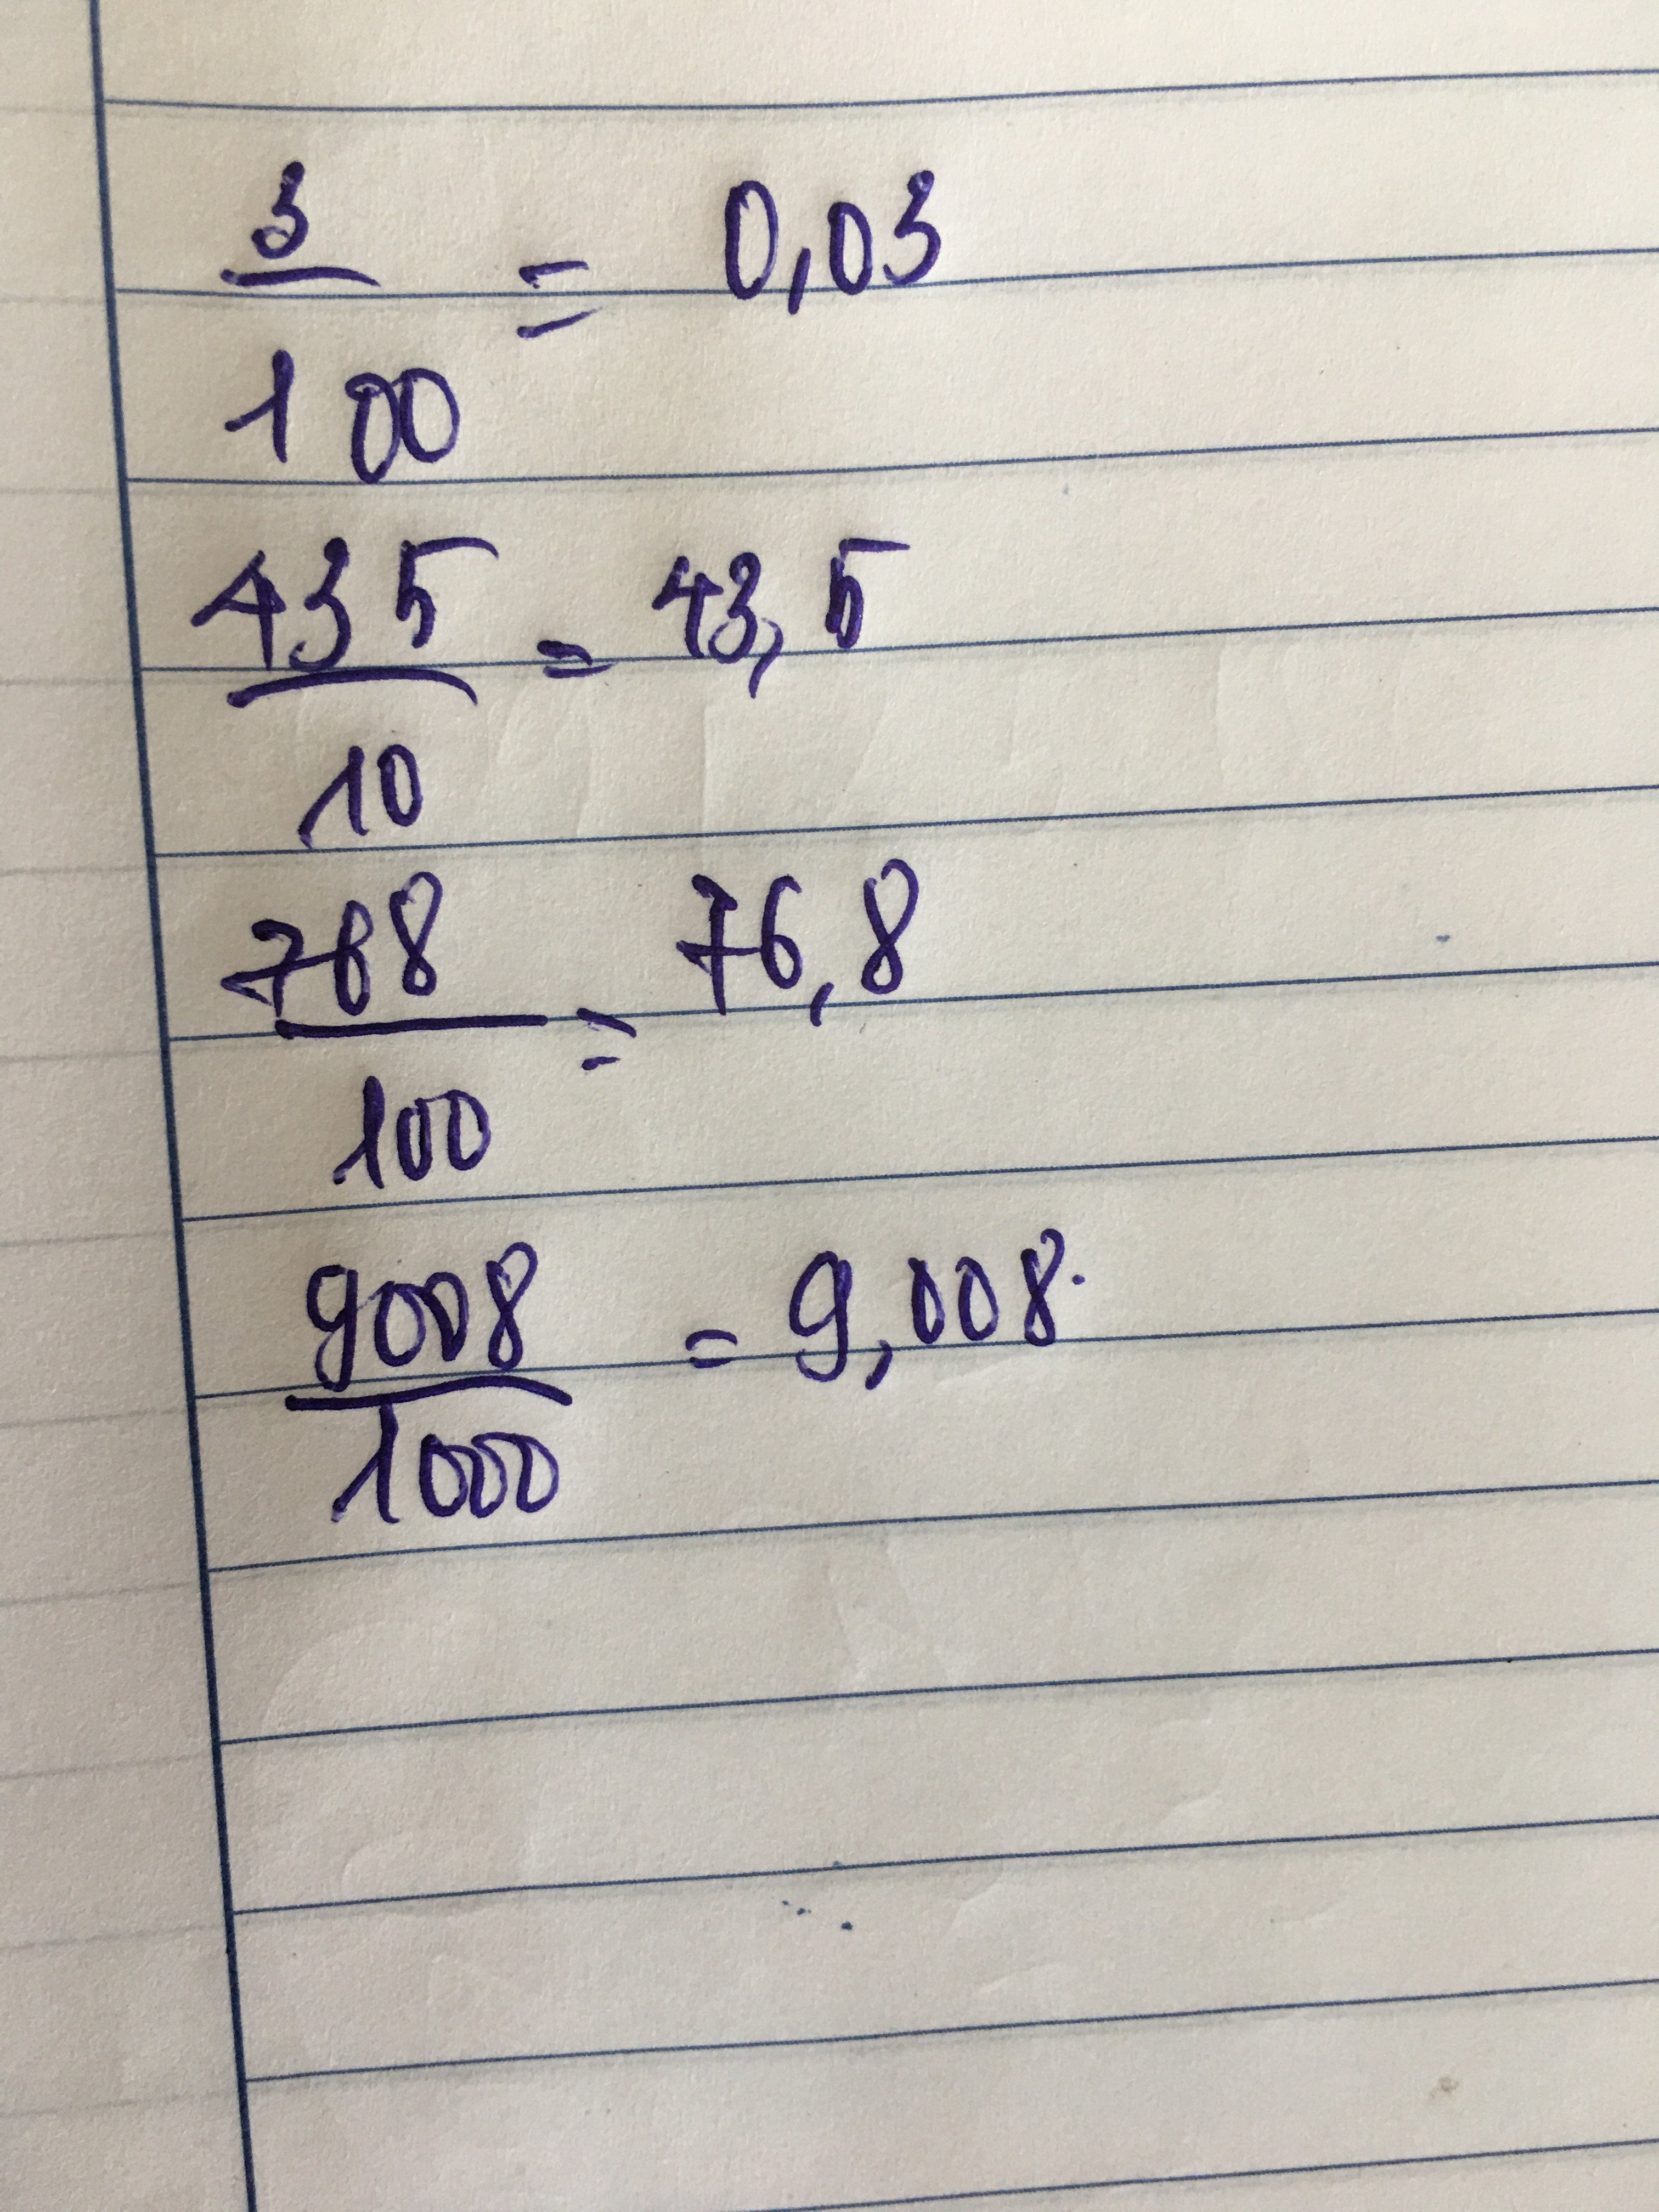 3/100 = 0,03
435/10 = 43,5
768/100 = 76,8
9008/1000 = 9,008.